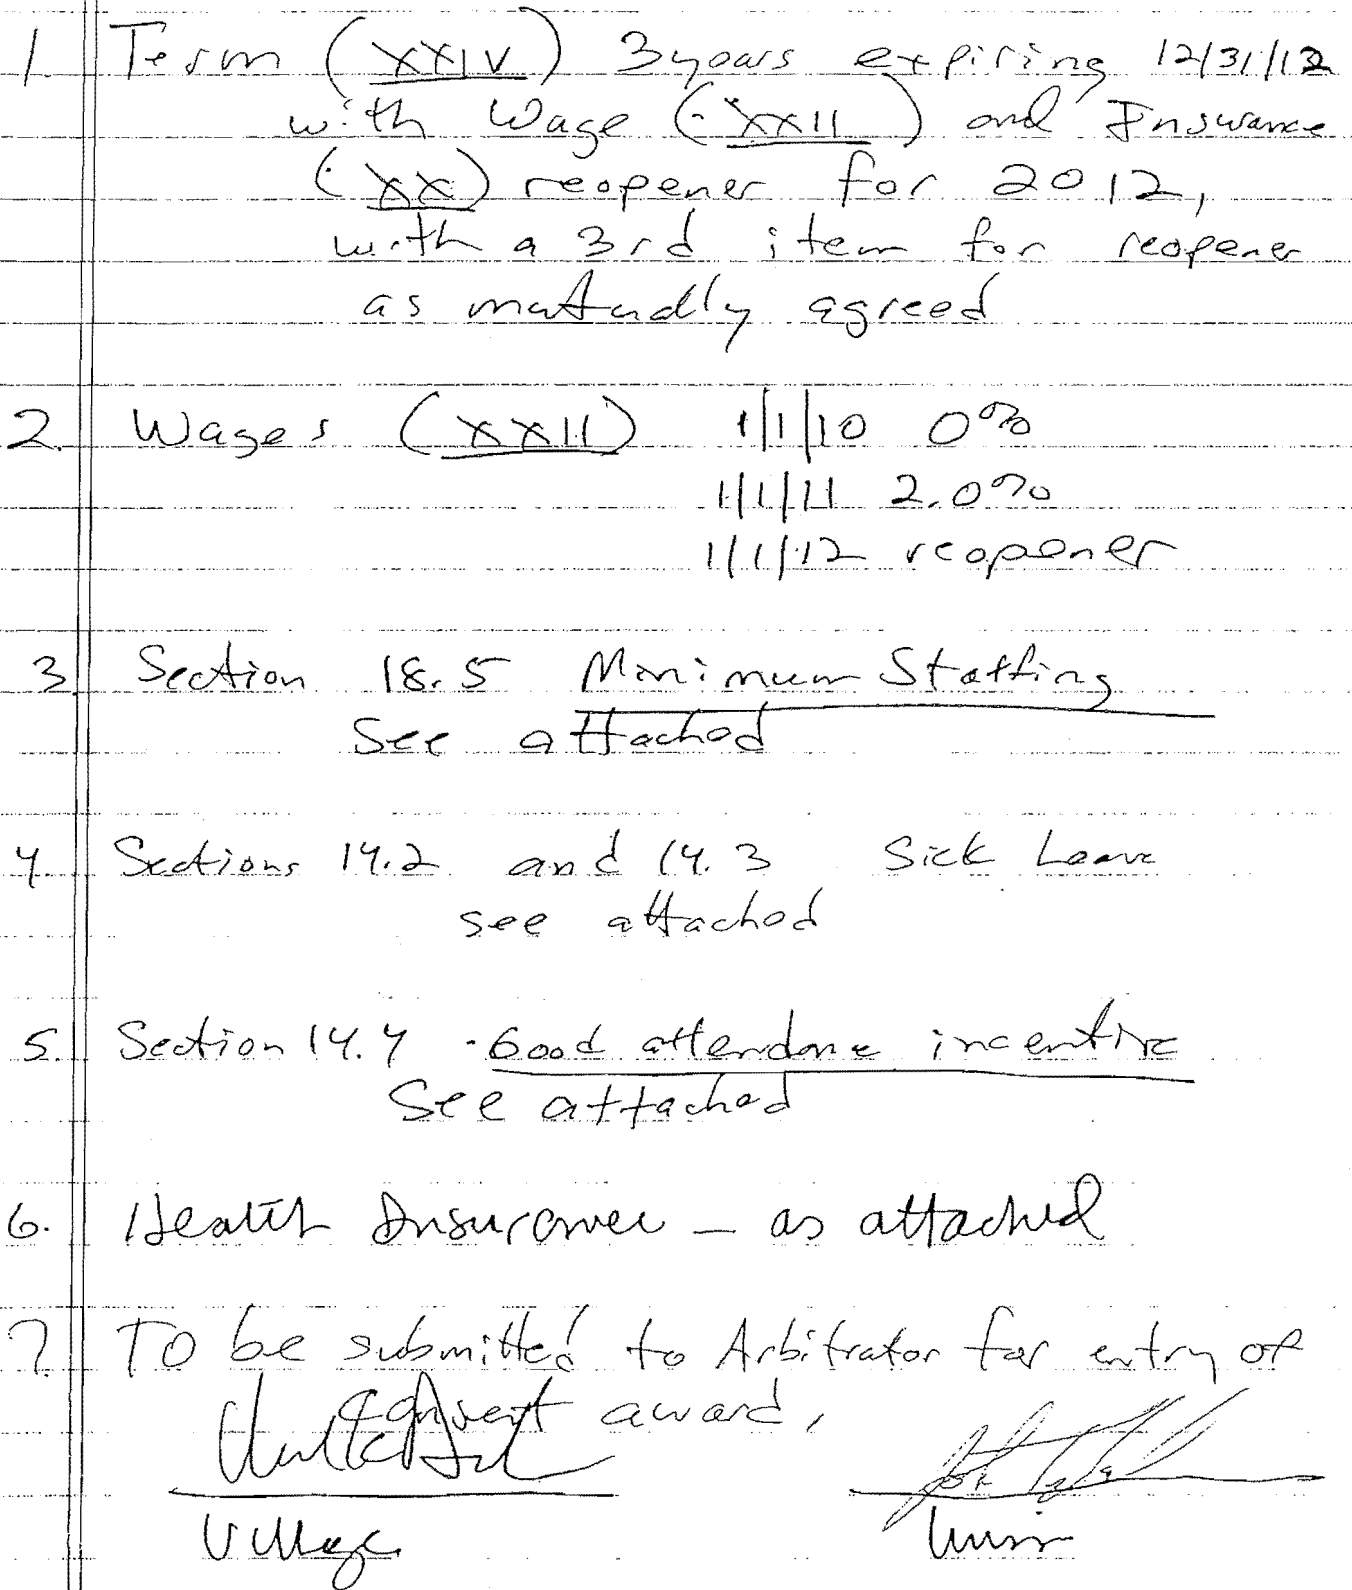 1. Term (XXIV) 3 years expiring 12/31/12
with Wage (XXII) and Insurance
(XX) reopener for 2012,
with a 3rd item for reopener
as mutually agreed
2. Wages (XXII) 1/1/10 0%
1/1/11 2.0%
1/1/12 reopener
3. Section 18.5 Minimum Staffing
See attached
4. Sections 14.2 and 14.3 Sick Leave
see attached
5. Section 14.4 - Good attendance incentive
See attached
6. Health Insurance - as attached
7. To be submitted to Arbitrator for entry of
consent award.
Village Union